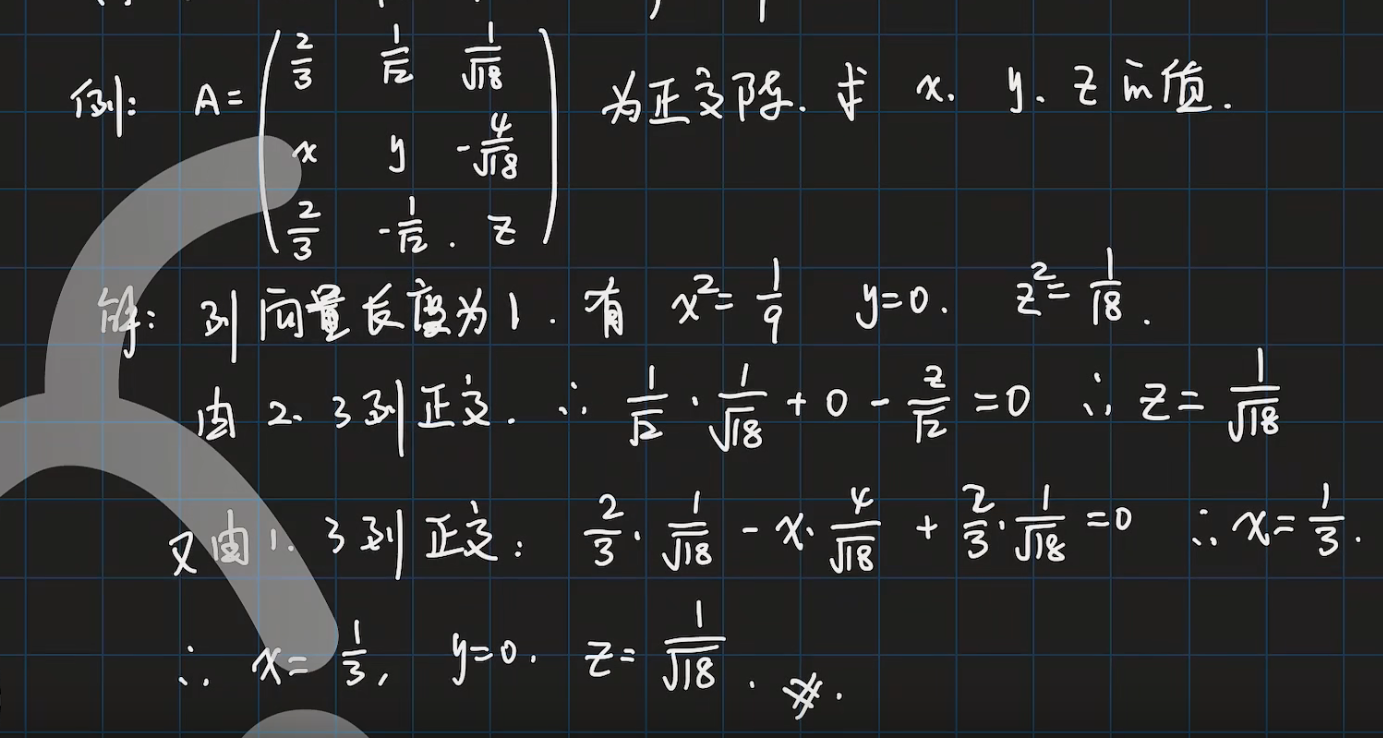 例: A= ( 2/3 1/√2 1/√18
x y -4/√18
2/3 -1/√2. z ) 为正交阵. 求 x. y. z 的值.
解: 列向量长度为1. 有 x²=1/9 y=0. z²=1/18.
由 2. 3列正交. ∴ 1/√2 · 1/√18 + 0 - z/√2 =0 ∴ z= 1/√18
又由1. 3列正交: 2/3 · 1/√18 - x · 4/√18 + 2/3 · 1/√18 =0 ∴ x= 1/3.
∴ x= 1/3, y=0. z= 1/√18 . #.